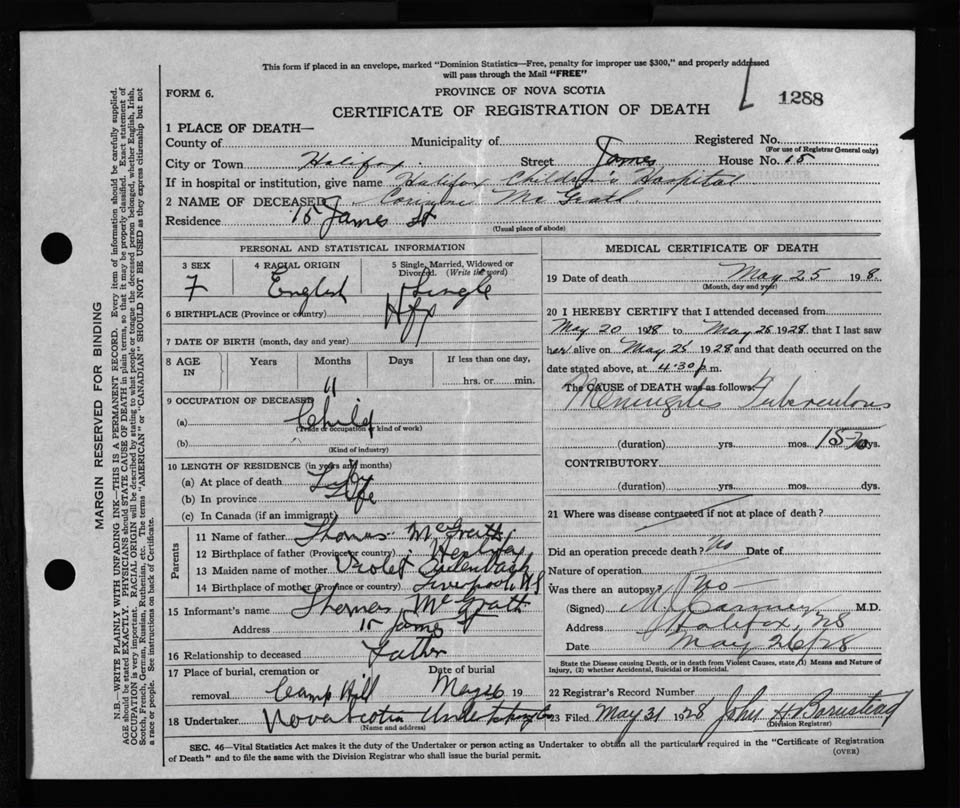 This form if placed in an envelope, marked "Dominion Statistics—Free, penalty for improper use $300," and properly addressed
will pass through the Mail "FREE"
FORM 6.
PROVINCE OF NOVA SCOTIA
1288
CERTIFICATE OF REGISTRATION OF DEATH
1 PLACE OF DEATH—
County of Municipality of Registered No.
(For use of Registrar General only)
City or Town Halifax. Street James House No. 15
If in hospital or institution, give name Halifax Children's Hospital
2 NAME OF DECEASED Mc Grath
Residence 15 James St
(Usual place of abode)
PERSONAL AND STATISTICAL INFORMATION
3 SEX 4 RACIAL ORIGIN 5 Single, Married, Widowed or
Divorced. (Write the word)
F English Single
6 BIRTHPLACE (Province or country) Hfx
7 DATE OF BIRTH (month, day and year)
8 AGE IN Years Months Days If less than one day,
11 hrs. or min.
9 OCCUPATION OF DECEASED
(a) Child
(Trade or occupation or kind of work)
(b)
(Kind of industry)
10 LENGTH OF RESIDENCE (in years and months)
(a) At place of death
(b) In province Life
(c) In Canada (if an immigrant)
Parents
11 Name of father Thomas McGrath
12 Birthplace of father (Province or country)
13 Maiden name of mother Violet
14 Birthplace of mother (Province or country) Liverpool NS
15 Informant's name Thomas McGrath
Address 15 James St
16 Relationship to deceased Father
17 Place of burial, cremation or Date of burial
removal Camp Hill May 26 19
18 Undertaker Nova Scotia Undertaking Co
(Name and address)
MEDICAL CERTIFICATE OF DEATH
19 Date of death May 25 1928.
(Month, day and year)
20 I HEREBY CERTIFY that I attended deceased from
May 20 1928 to May 25 1928 that I last saw
her alive on May 25 1928 and that death occurred on the
date stated above, at 4.30 p.m.
The CAUSE OF DEATH was as follows:
Meningitis Tuberculous
(duration) yrs. mos. dys.
CONTRIBUTORY
(duration) yrs. mos. dys.
21 Where was disease contracted if not at place of death?
Did an operation precede death? No Date of
Nature of operation
Was there an autopsy? No
(Signed) M.D.
Address Halifax, NS
Date May 26/28
State the Disease causing Death, or in death from Violent Causes, state (1) Means and Nature of
Injury, (2) whether Accidental, Suicidal or Homicidal.
22 Registrar's Record Number
23 Filed May 31 1928 John H Barnstead
(Division Registrar)
SEC. 46—Vital Statistics Act makes it the duty of the Undertaker or person acting as Undertaker to obtain all the particulars required in the "Certificate of Registration
of Death" and to file the same with the Division Registrar who shall issue the burial permit.
(OVER)
MARGIN RESERVED FOR BINDING
N.B.—WRITE PLAINLY WITH UNFADING INK—THIS IS A PERMANENT RECORD. Every item of information should be carefully supplied.
AGE should be stated EXACTLY. PHYSICIANS should STATE CAUSE OF DEATH in plain terms, so that it may be properly classified. Exact statement of
OCCUPATION is very important. RACIAL ORIGIN will be described by stating to what people or tongue the deceased person belonged, whether English, Irish,
Scotch, French, German, Russian, Ruthenian, etc. The terms "AMERICAN" or "CANADIAN" SHOULD NOT BE USED as they express citizenship but not
a race or people. See instructions on back of Certificate.